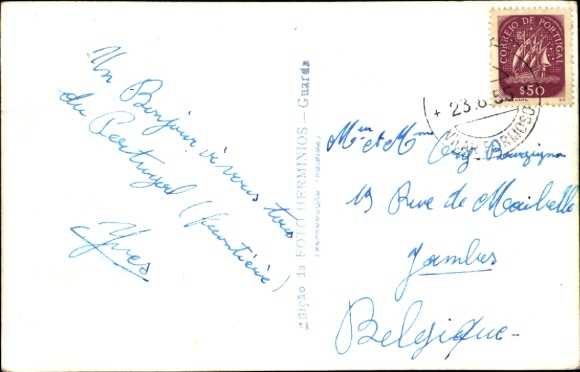 Un Bonjour à vous tous
du Portugal (frontière)
Yves
Edição da FOTO HERMINIOS — Guarda
(REPRODUÇÃO PROIBIDA)
CORREIO DE PORTUGAL
$50
23.8.55
VILAR FORMOSO
Mr et Mme Bourguignon
13 Rue de Maibelle
Jambes
Belgique-